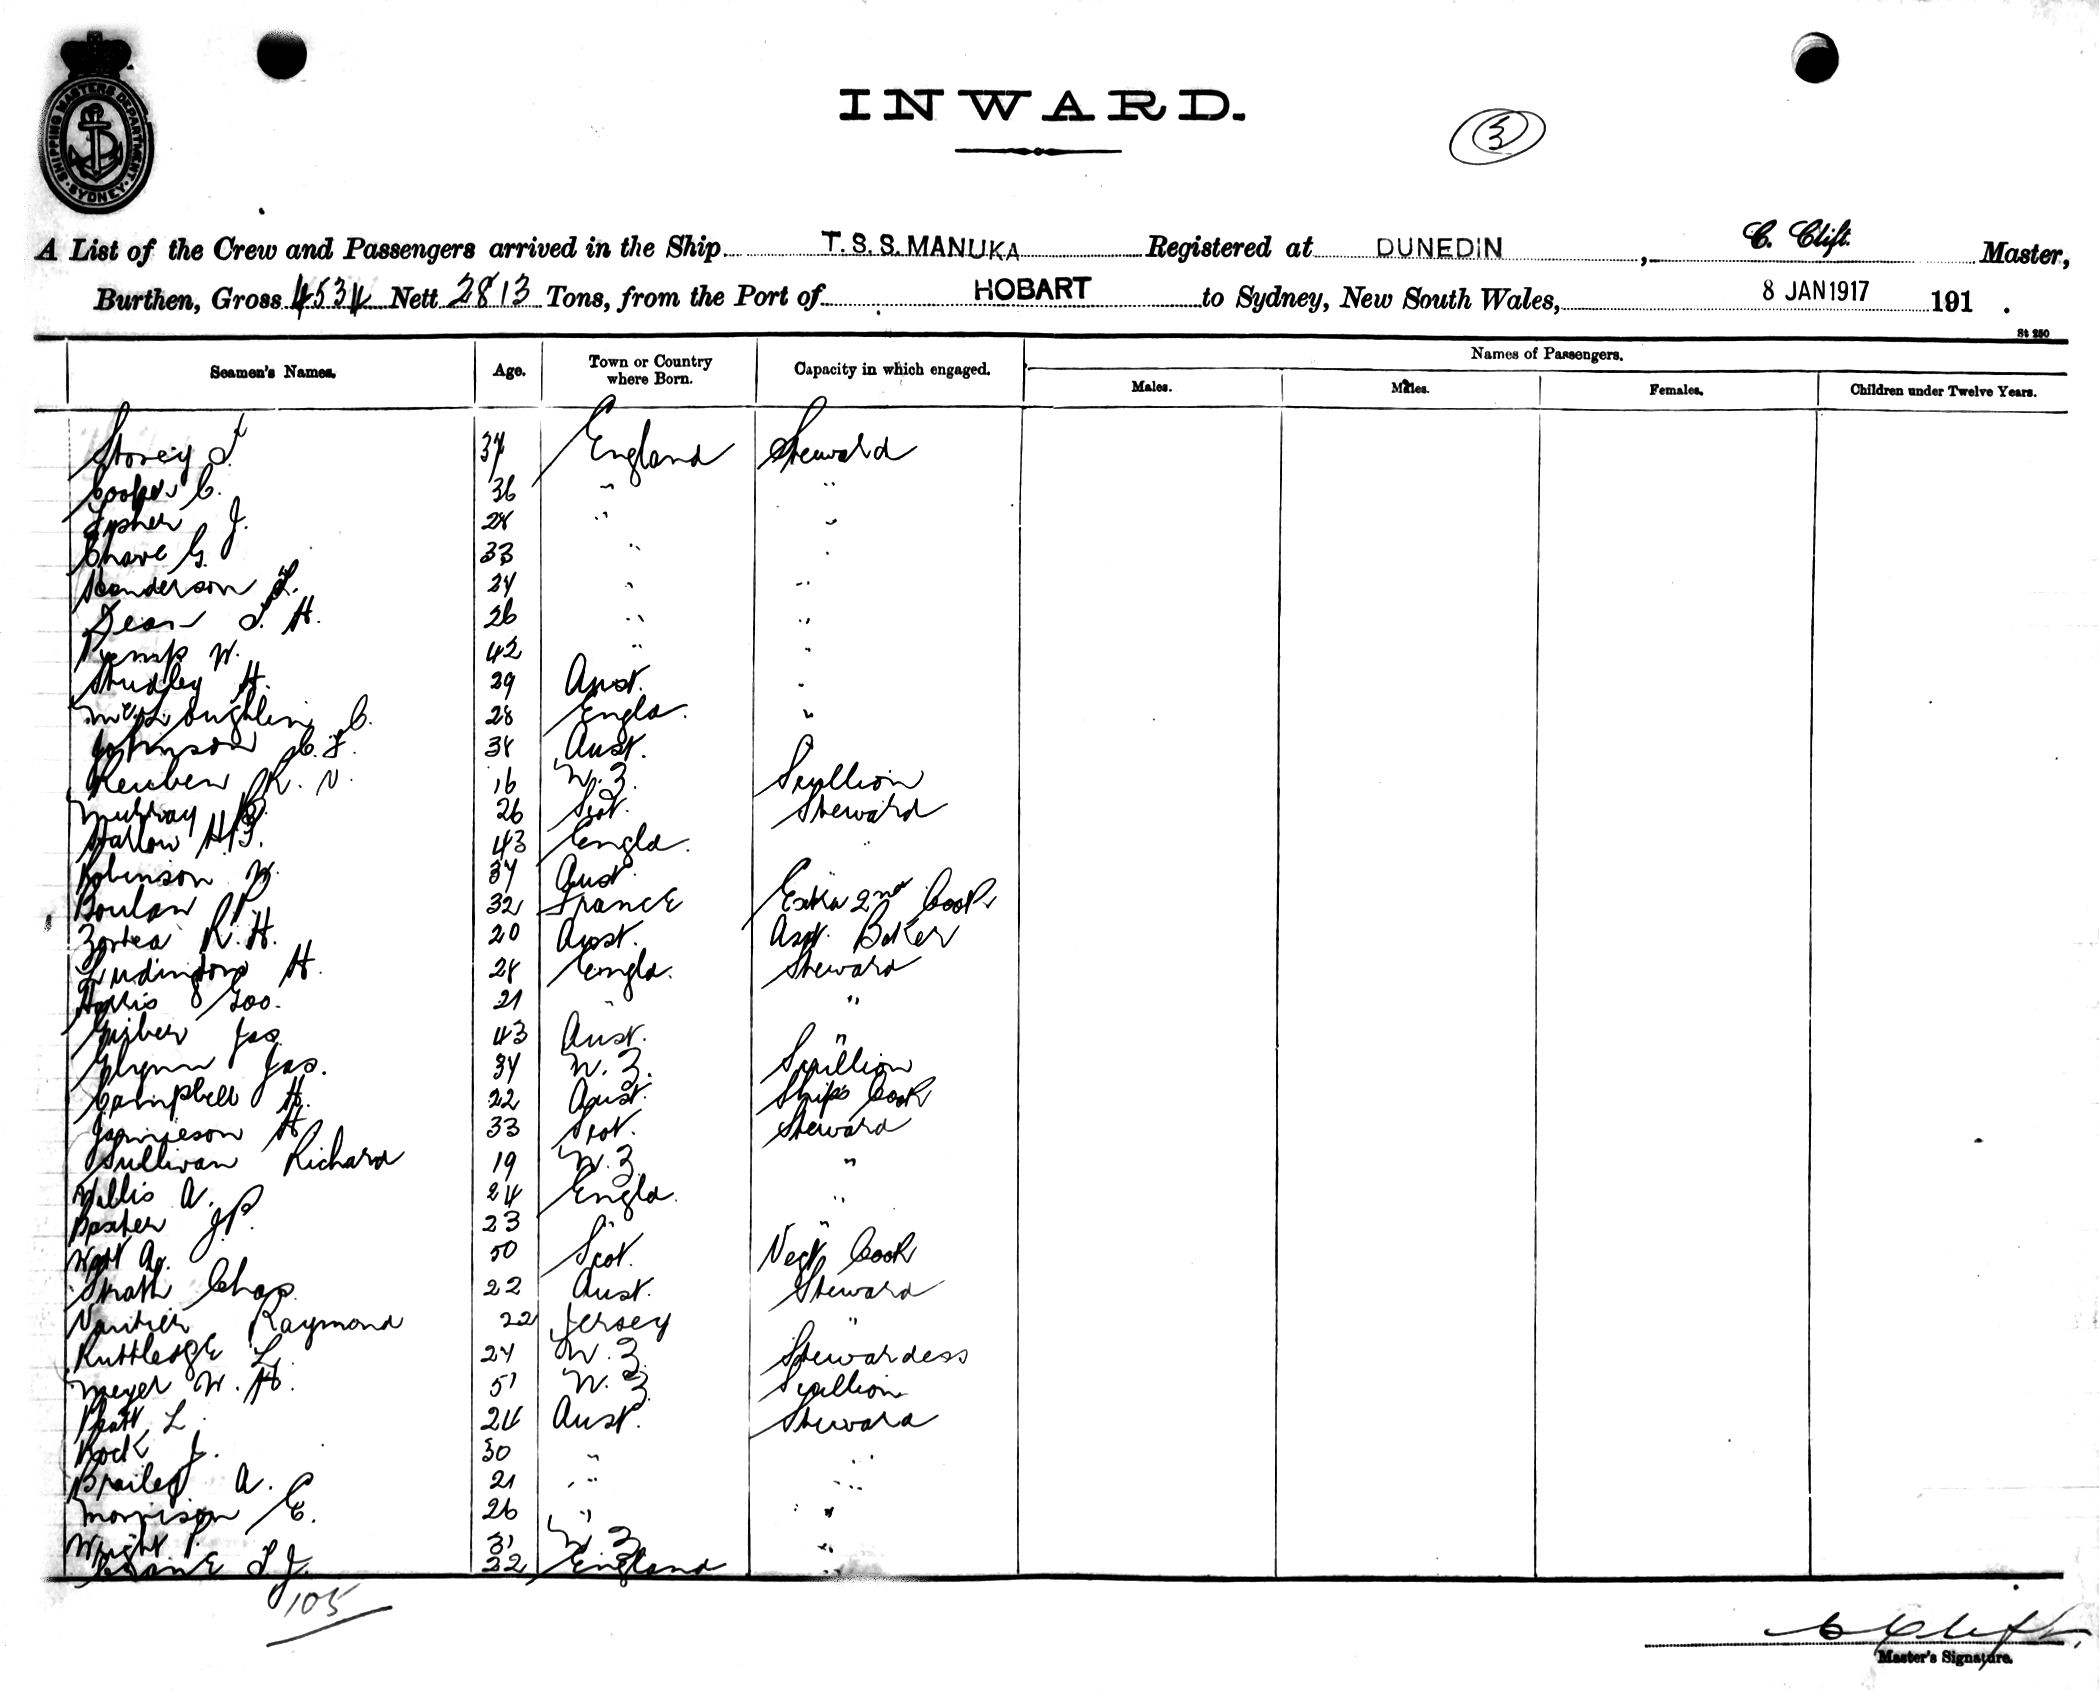 SHIPPING MASTERS DEPARTMENT SYDNEY
INWARD.
3
A List of the Crew and Passengers arrived in the Ship T.S.S. MANUKA Registered at DUNEDIN, C. Clift. Master,
Burthen, Gross 4534 Nett 2813 Tons, from the Port of HOBART to Sydney, New South Wales, 8 JAN 1917 191 .
St 250
Seamen's Names. Age. Town or Country where Born. Capacity in which engaged. Names of Passengers.
Males. Males. Females. Children under Twelve Years.
Storey 37 England Steward
Cooper C. 36 " "
Fisher J. 28 " "
Chave G. 33 " "
Henderson 24 " "
Dean J. H. 26 " "
W. 42 " "
Studley H. 29 Aust. "
McLoughlin C. 28 Engld. "
Johnson C. F. 38 Aust.
Reuben R. V. 16 N.Z. Scullion
Murray 26 Scot. Steward
Harlow H.B. 43 Engld. "
Robinson W. 37 Aust. "
Boulan P. 32 France Extra 2nd Cook
Zortea R. H. 20 Aust. Asst. Baker
Ludington H. 28 Engld. Steward
Harris Geo. 21 " "
Jas. 43 Aust. "
Glynn Jas. 34 N.Z. Scullion
Campbell H. 22 Aust. Ships Cook
Jamieson H. 33 Scot. Steward
Sullivan Richard 19 N.Z. "
Willis A. 24 Engld. "
Baxter J.P. 23 " "
A. 50 Scot. Vegt. Cook
Strath Chas. 22 Aust. Steward
Vautier Raymond 22 Jersey "
Ruttledge L. 24 N.Z. Stewardess
Meyer W. H. 51 N.Z. Scullion
Pratt L. 24 Aust. Steward
Rock J. 30 " "
Brailey A. 21 " "
Morrison E. 26 " "
Wright P. 31 N.Z. "
J. 22 England "
105
C Clift.
Master's Signature.